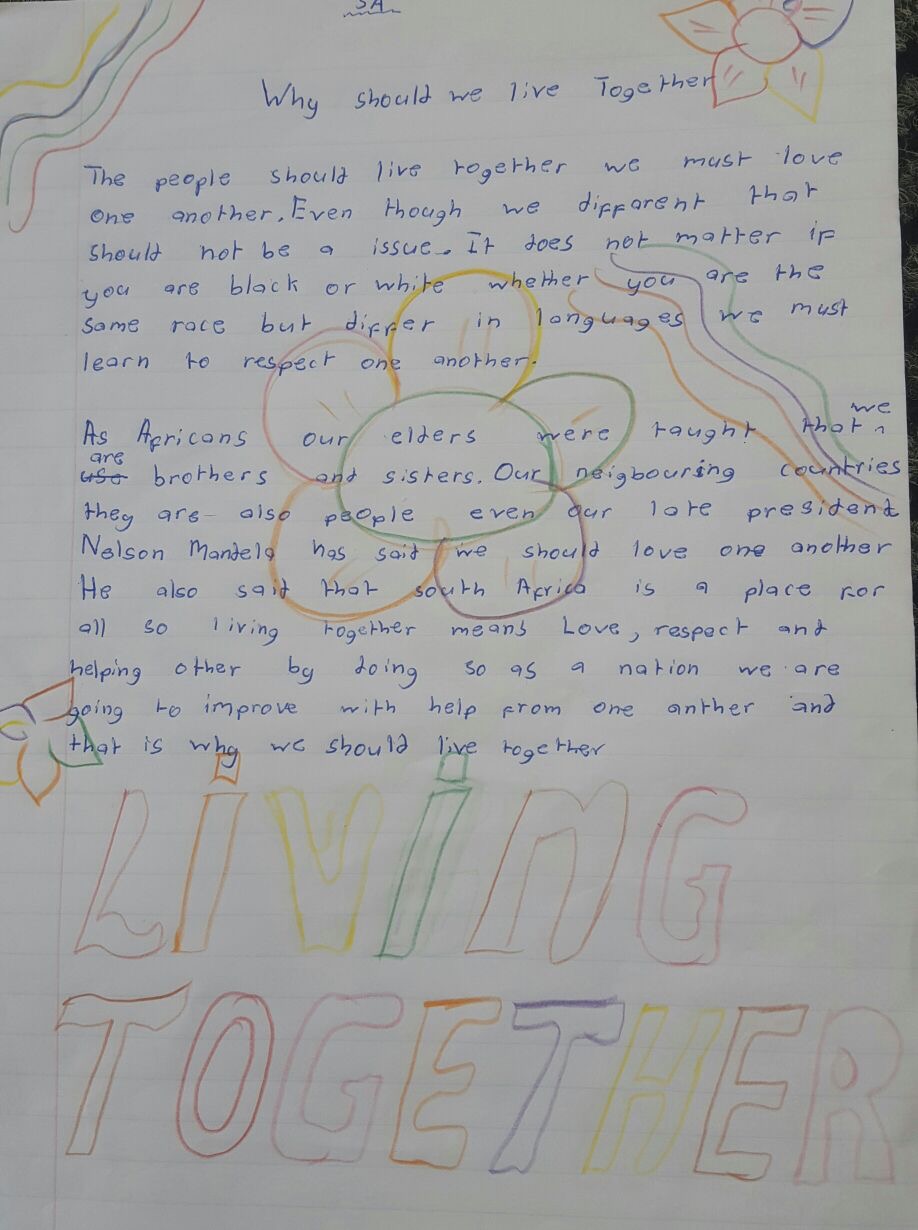 SA
Why should we live Together
The people should live together we must love
one another. Even though we differrent that
should not be a issue. It does not matter if
you are black or white whether you are the
same race but differ in languages we must
learn to respect one another.
As Africans our elders were taught that we
are brothers and sisters. Our neigbouring countries
they are also people even our late president
Nelson Mandela has said we should love one another
He also said that south Africa is a place for
all so living together means Love, respect and
helping other by doing so as a nation we are
going to improve with help from one anther and
that is why we should live together
LiViNG
TOGETHER